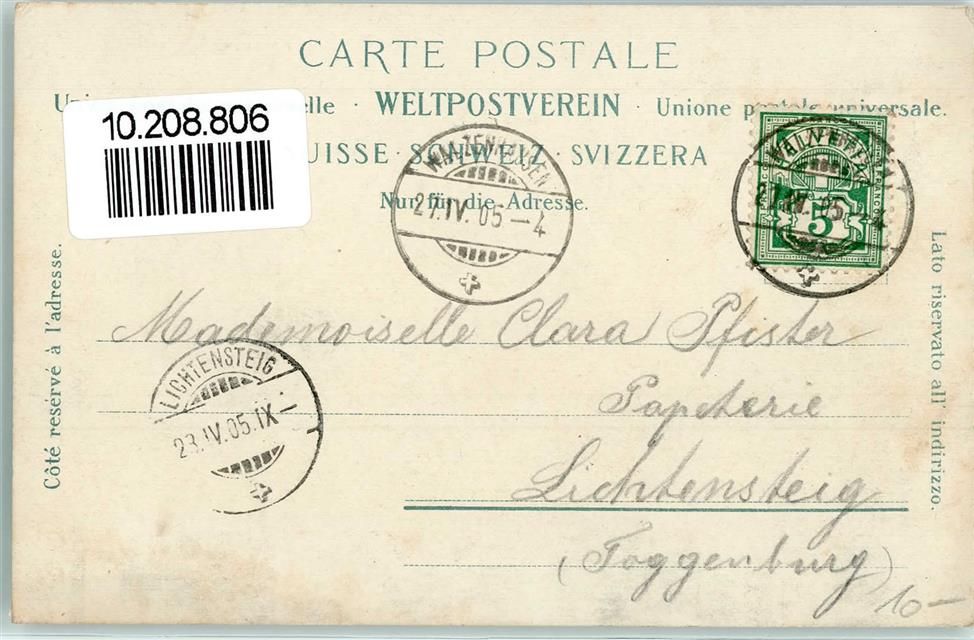 CARTE POSTALE
Un elle · WELTPOSTVEREIN · Unione postale universale.
10.208.806
UISSE · SCHWEIZ · SVIZZERA
Nur für die Adresse.
27.IV.05–4
5
27.IV.05 4
Côté reservé à l'adresse.
Lato riservato all' indirizzo.
Mademoiselle Clara Pfister
LICHTENSTEIG
23.IV.05.IX–
Papeterie
Lichtensteig
(Toggenburg)
10–